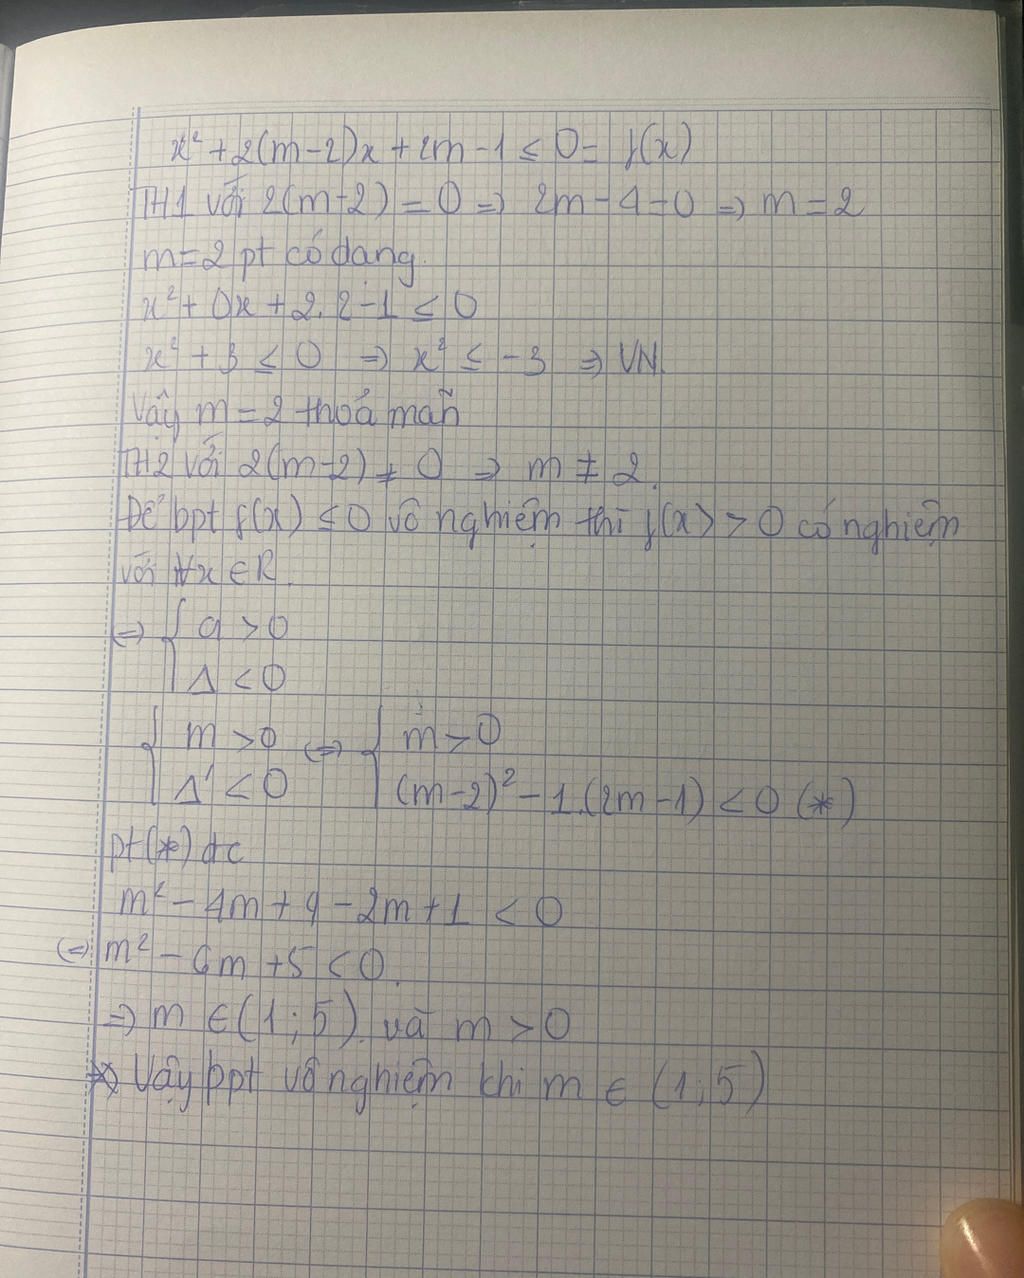 x² + 2(m-2)x + 2m - 1 ≤ 0 = f(x)
TH1 với 2(m-2) = 0 => 2m - 4 = 0 => m = 2
m = 2 pt có dạng
x² + 0x + 2.2 - 1 ≤ 0
x² + 3 ≤ 0 => x² ≤ -3 => VN.
Vậy m = 2 thoả mãn
TH2 với 2(m-2) ≠ 0 => m ≠ 2.
Để bpt f(x) ≤ 0 vô nghiệm thì f(x) > 0 có nghiệm
với ∀x ∈ R.
<=> { a > 0
Δ < 0
{ m > 0 <=> { m > 0
Δ' < 0 (m-2)² - 1.(2m-1) < 0 (*)
pt(*) đc
m² - 4m + 4 - 2m + 1 < 0
<=> m² - 6m + 5 < 0.
=> m ∈ (1; 5). và m > 0
Vậy bpt vô nghiệm khi m ∈ (1; 5)